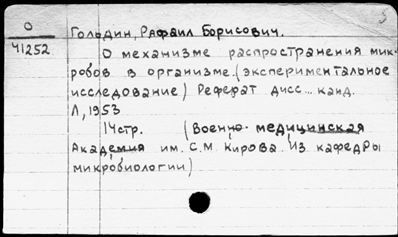 О
Ч1252
Голодин, Рафаил Борисович.
О механизме распространения мик-
робов в организме. (экспериментальное
исследование) Реферат дисс... канд.
Л, 1953
14стр. (Военно-медицинская
Академия им. С.М. Кирова. Из кафедры
микробиологии)